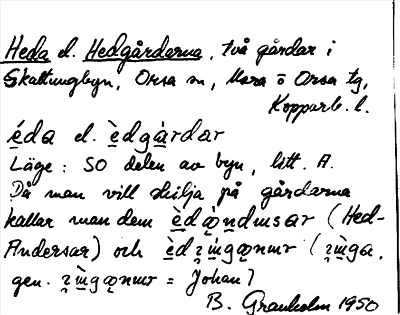 Heda el. Hedgårdarna, två gårdar i
Skattungbyn, Orsa sn, Mora o Orsa tg,
Kopparb. l.
éda el. èdgàrdar
Läge: SO delen av byn, litt. A.
Då man vill skilja på gårdarna
kallar man dem (Hed-
Andersar) och
gen. = Johan)
B. Granholm 1950